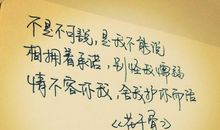 不是不可说，是我不能说
相拥着承诺，别怪我懦弱
情不容你我，舍我护你而活
《花千骨》